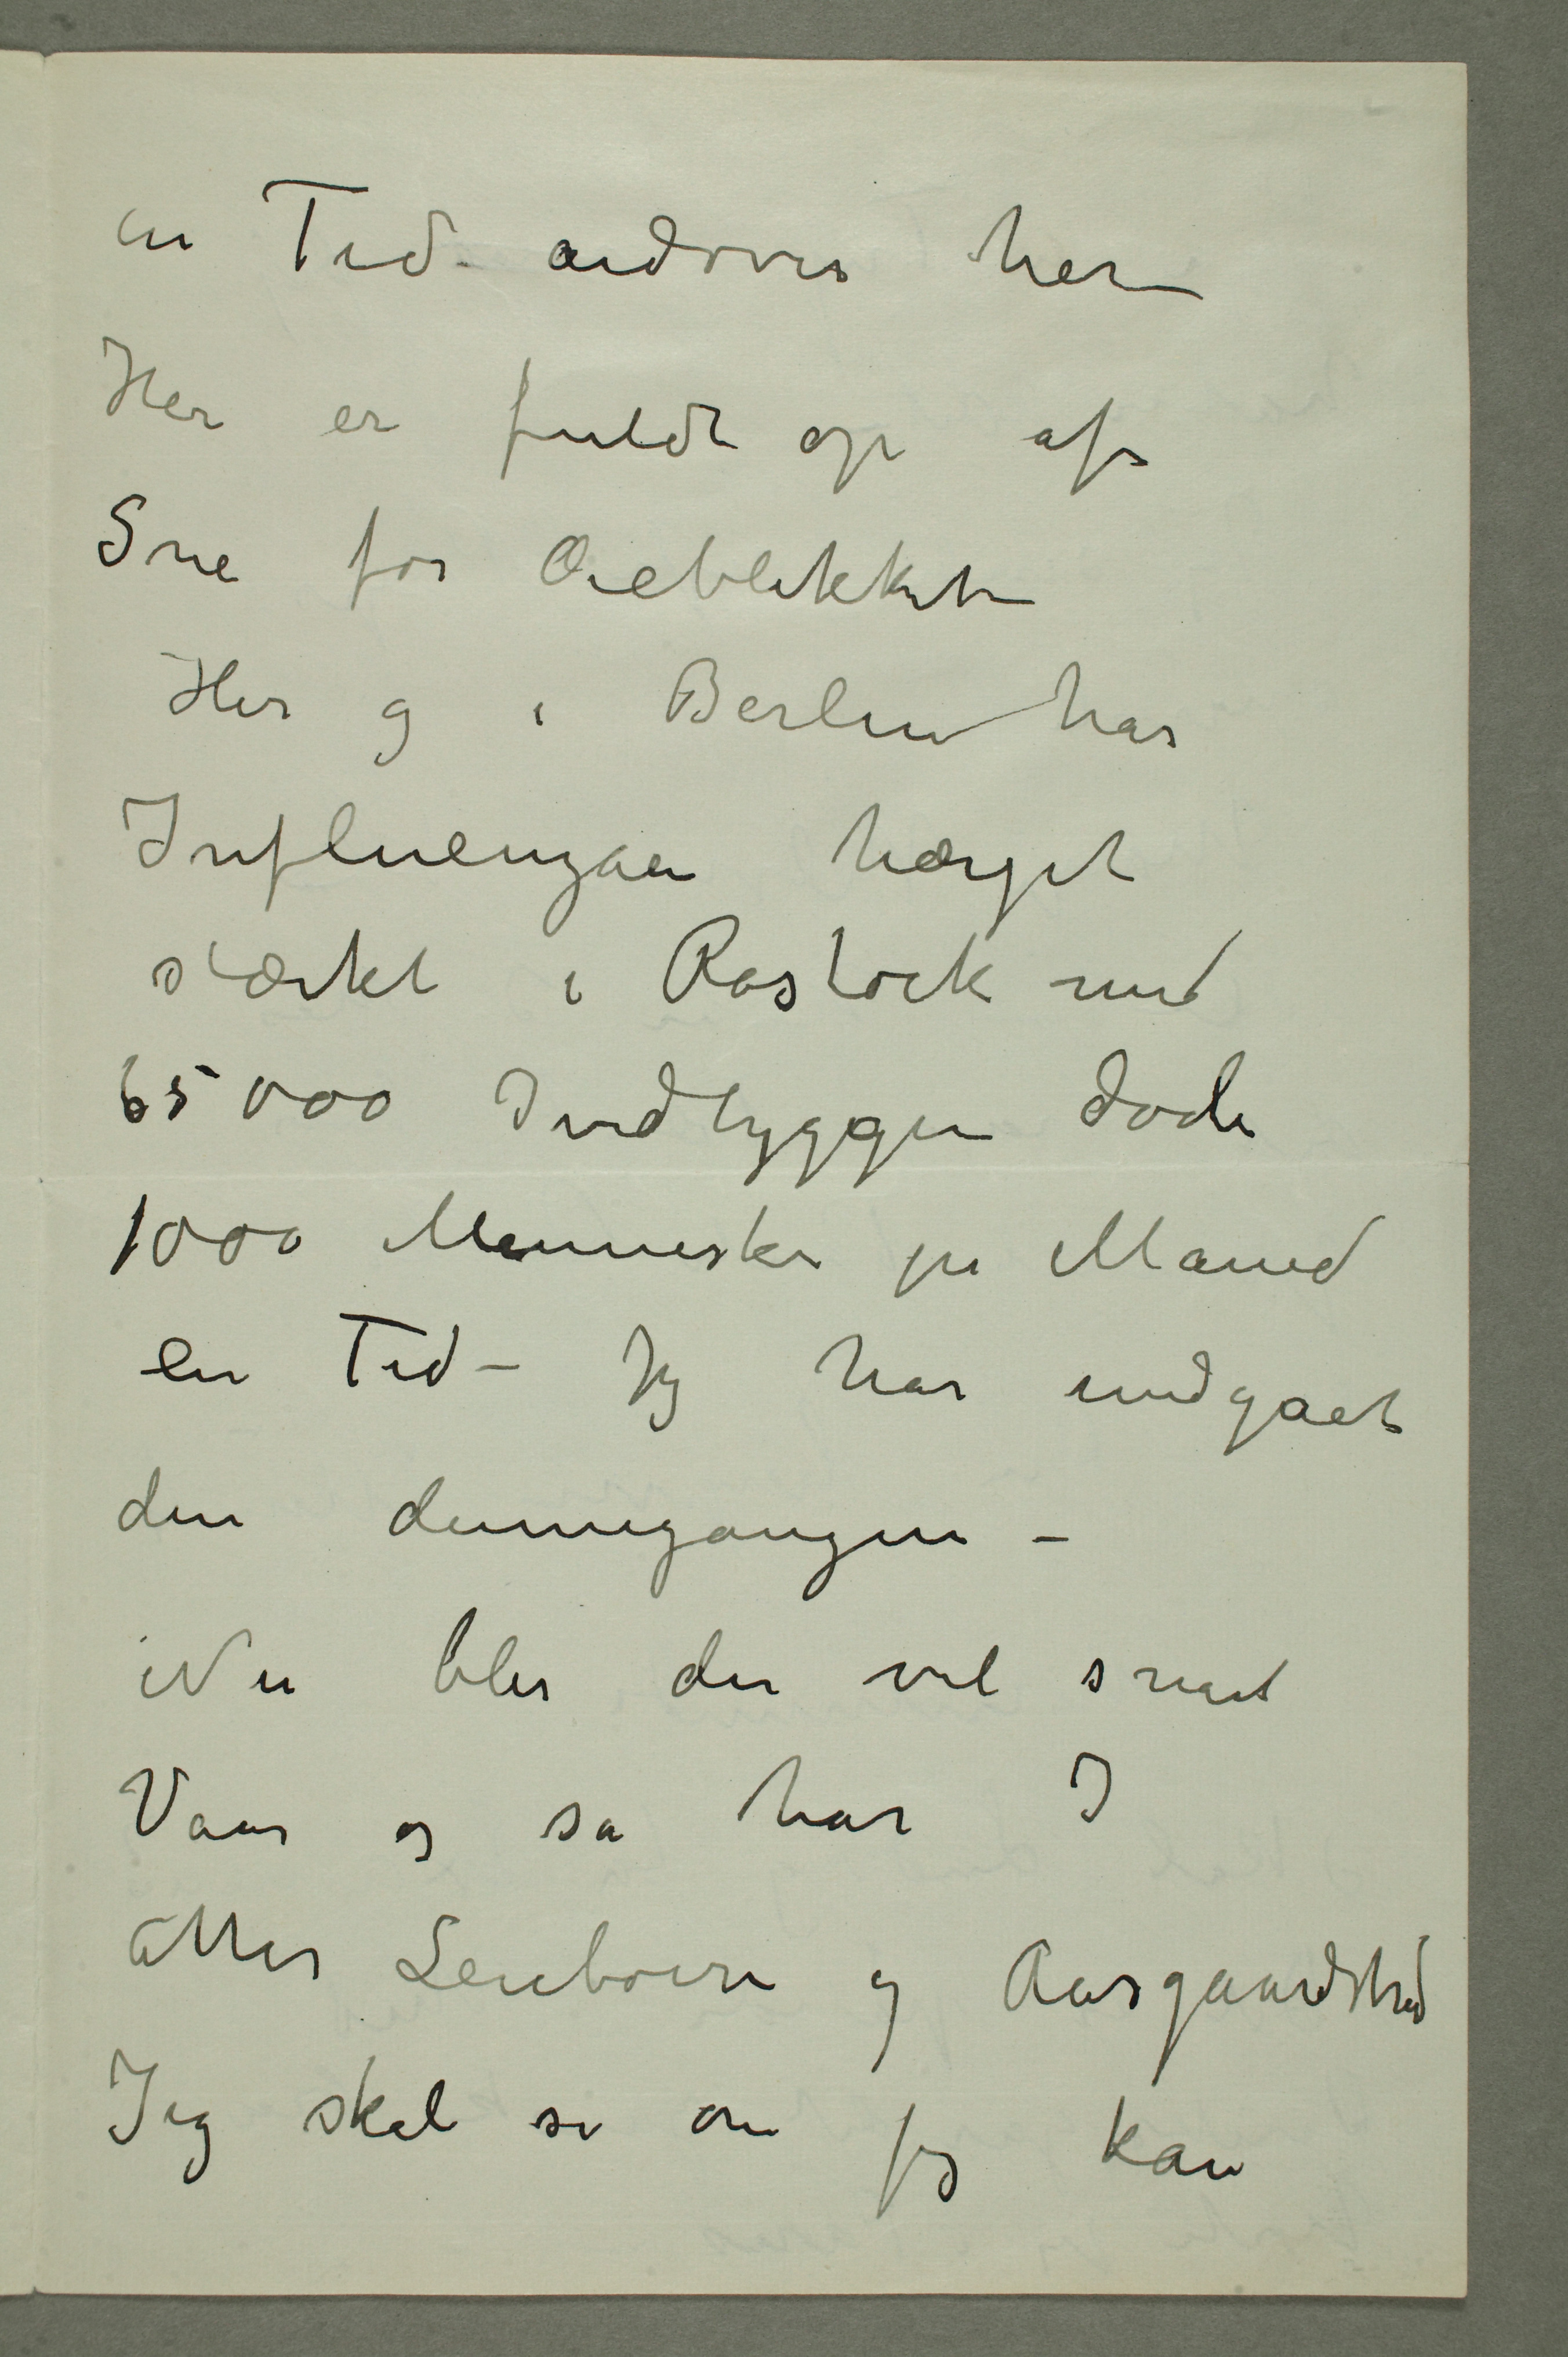 en Tid udover her –
Her er fuldt op af
Sne for Øieblikket –
Her og i Berlin har
Influenzaen hærget
stærkt i Rostock med
65000 Indbygger døde
1000 Mennesker pr Maned
en Tid – Jeg har undgaet
den dennegangen –
Nu blir der vel snart
Vaar og så har I
atter Leieboere og Aasgaardstrand
Jeg skal se om jeg kan